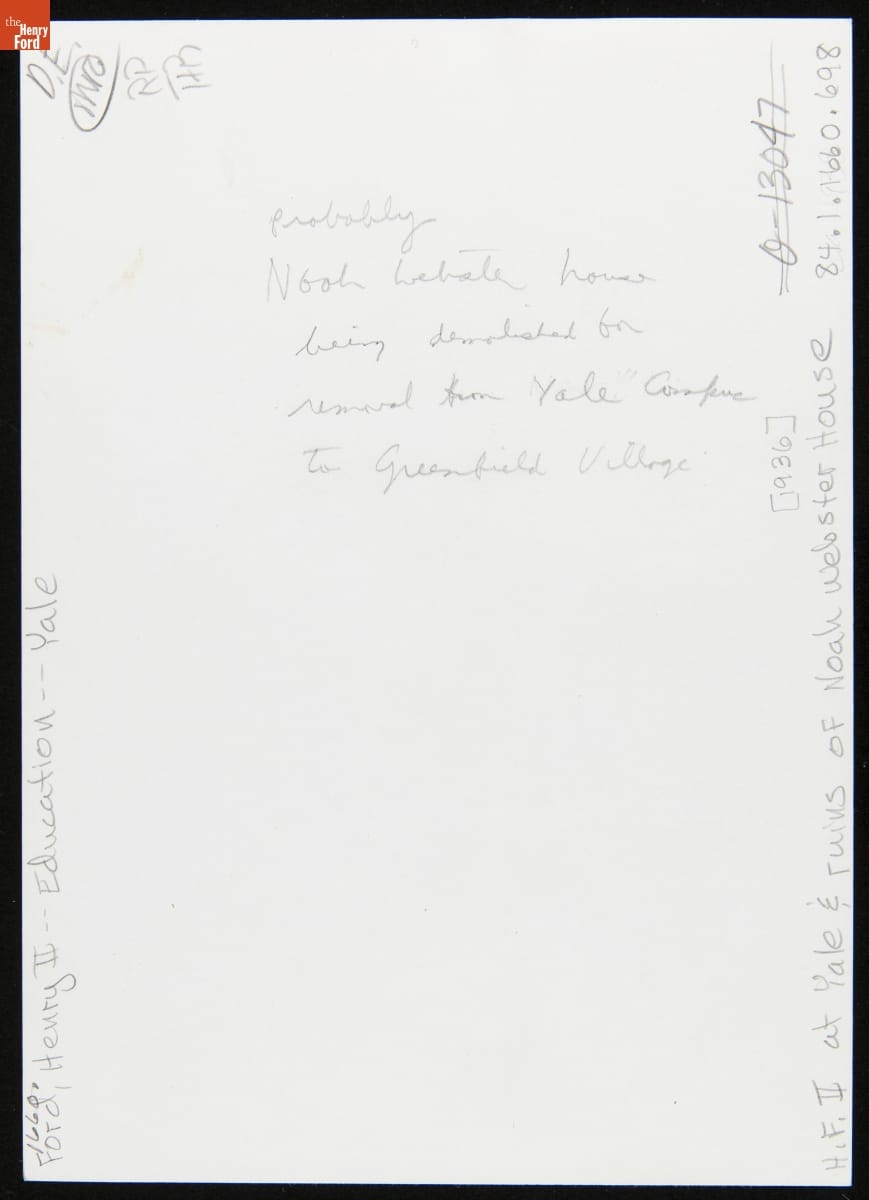 the
Henry
Ford
D.E.
RP
HP
probably
Noah Webster house
being demolished for
removal from "Yale" Campus
to Greenfield Village
O-13047
84.1.1660.698
[1936]
H.F. II at Yale & ruins of Noah Webster House
1660.
Ford, Henry II -- Education -- Yale